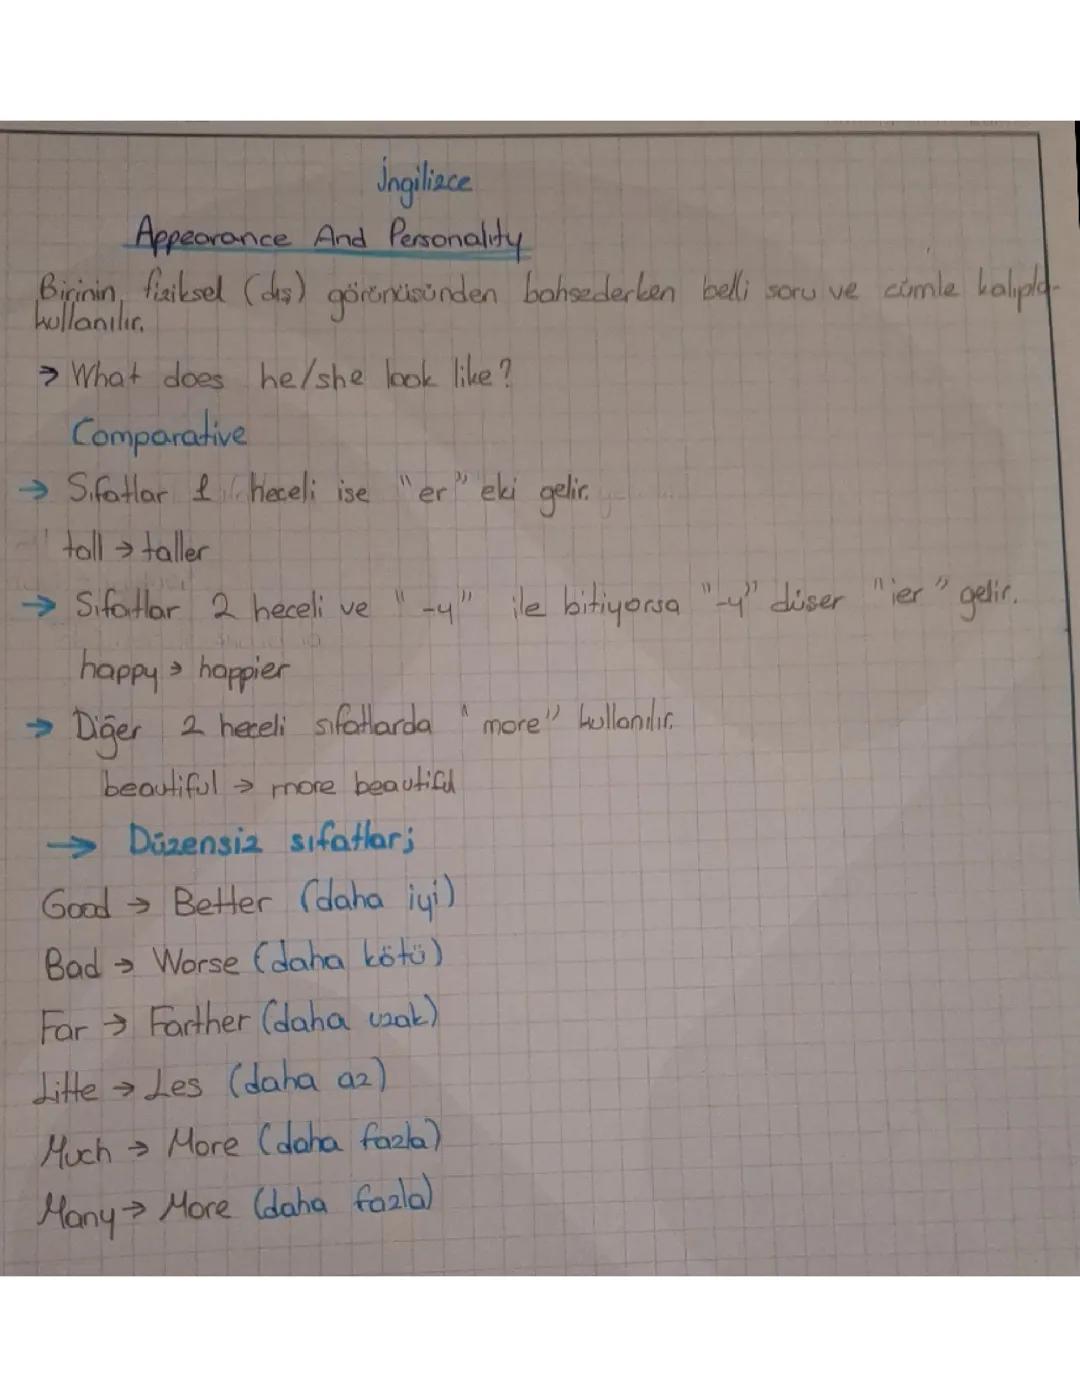 İngilizce
Appearance And Personality
Birinin fiziksel (dış) görünüşünden bahsederken belli soru ve cümle kalıpla-
kullanılır.
→ What does he/she look like?
Comparative
→ Sıfatlar 1 heceli ise "er" eki gelir.
tall → taller
→ Sıfatlar 2 heceli ve "-y" ile bitiyorsa "-y" düşer "ier" gelir.
happy → happier
→ Diğer 2 heceli sıfatlarda "more" kullanılır.
beautiful → more beautiful
→ Düzensiz sıfatlar;
Good → Better (daha iyi)
Bad → Worse (daha kötü)
Far → Farther (daha uzak)
Litte → Les (daha az)
Much → More (daha fazla)
Many → More (daha fazla)